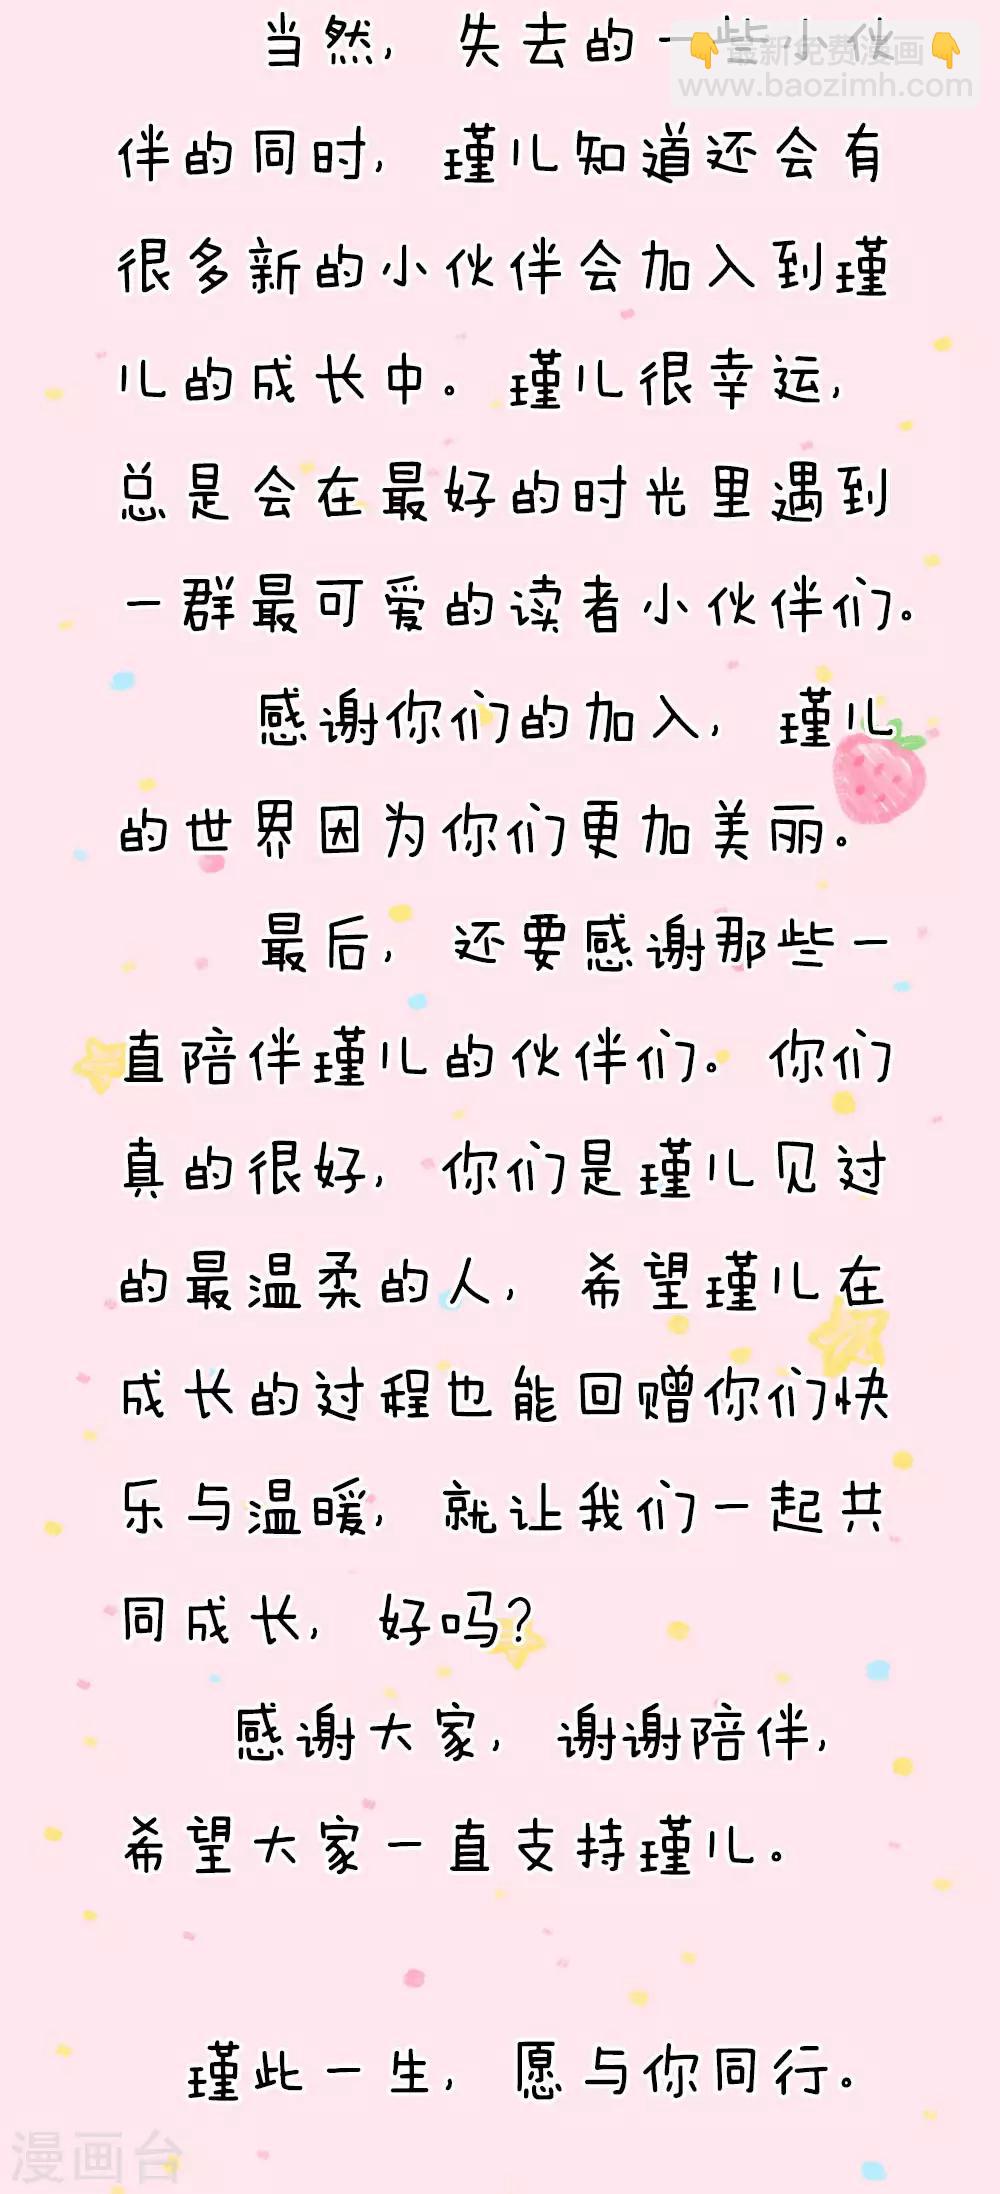 当然，失去的一些小伙
最新免费漫画
www.baozimh.com
伴的同时，瑾儿知道还会有
很多新的小伙伴会加入到瑾
儿的成长中。瑾儿很幸运，
总是会在最好的时光里遇到
一群最可爱的读者小伙伴们。
感谢你们的加入，瑾儿
的世界因为你们更加美丽。
最后，还要感谢那些一
直陪伴瑾儿的伙伴们。你们
真的很好，你们是瑾儿见过
的最温柔的人，希望瑾儿在
成长的过程也能回赠你们快
乐与温暖，就让我们一起共
同成长，好吗？
感谢大家，谢谢陪伴，
希望大家一直支持瑾儿。
瑾此一生，愿与你同行。
漫画台